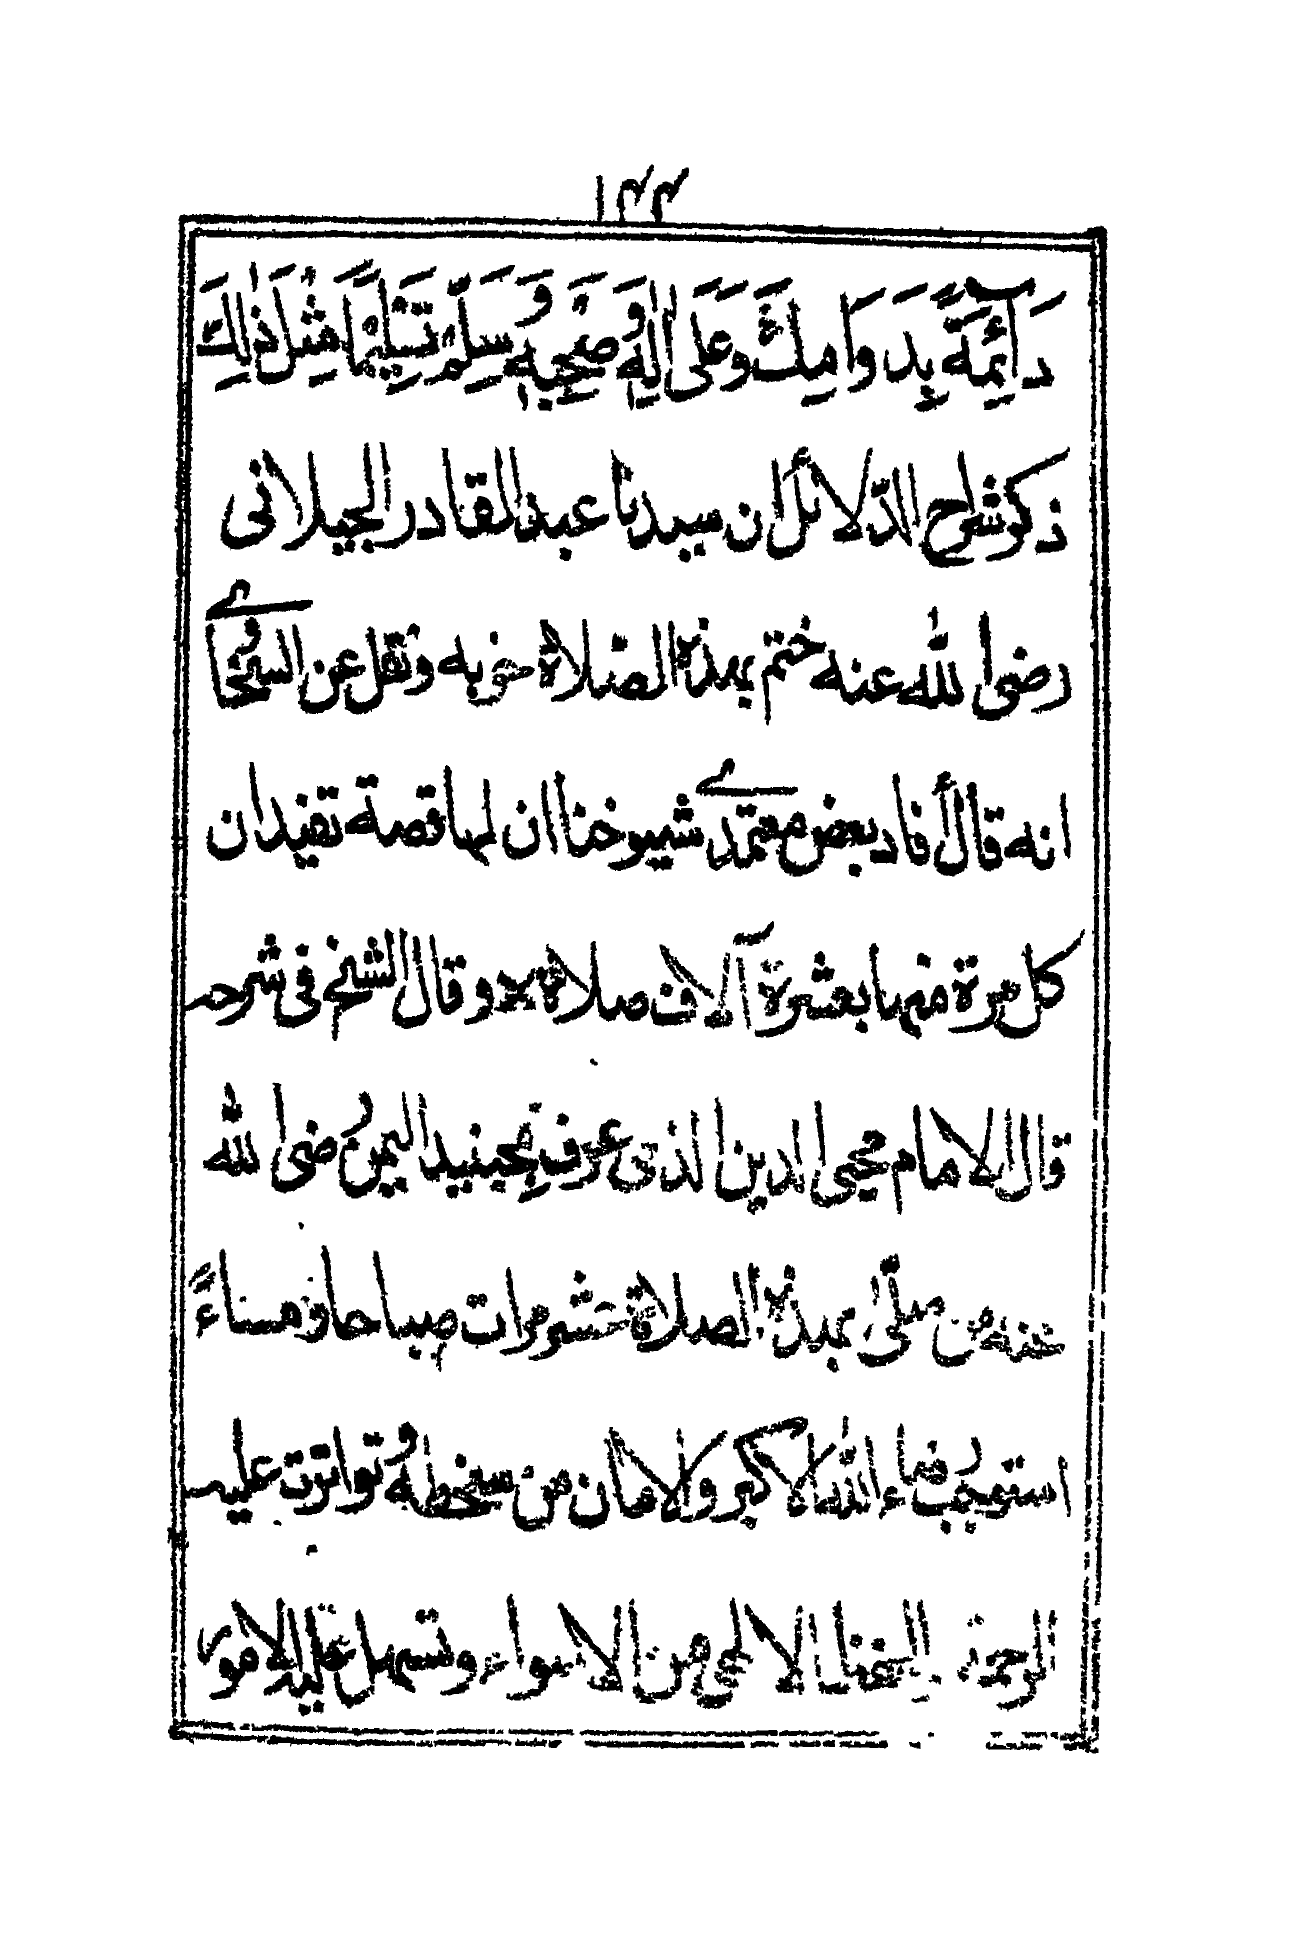 ١٢٢
دَآئِمَةً بِدَوَامِكَ وَعَلَى اٰلِهٖ وَصَحْبِهٖ وَسَلِّمْ تَسْلِيْمًا مِثْلَ ذٰلِكَ
ذكر شراح الدّلائل ان سيدنا عبد القادر الجيلانى
رضى الله عنه ختم بهذه الصّلاة حزبه ونقل عن السخاوى
انه قال أفاد بعض معتمدى شيوخنا ان لها قصة تفيد ان
كل مرة منها بعشرة آلاف صلاة وقال الشيخ فى شرحه
قال الامام محيى الدين الذى عرف بجنيد اليمن رضى الله
عنه من صلّى بهذه الصلاة عشر مرات صباحا ومساءً
استوجب رضاء الله الاكبر والامان من سخطه وتواترت عليه
الرحمة الحفظ الالهى من الاسواء وتسهل عليه الامور